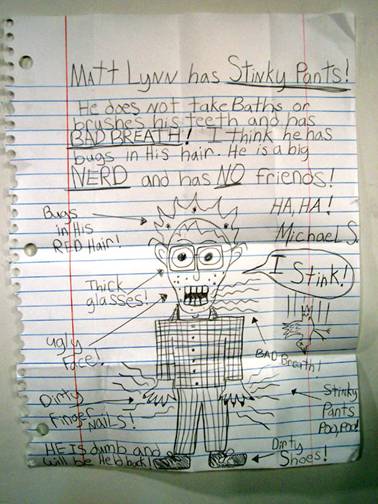 MATT LYNN has STINKY PANTS!
He does NOT take Baths or
brushes his teeth and has
BAD BREATH! I think he has
bugs in His hair. He is a big
NERD and has NO friends!
HA, HA!
Michael S.
Bugs
in His
RED Hair!
I Stink!
Thick
glasses!
ugly
Face!
BAD Breath!
Dirty
Finger
NAILS!
Stinky
Pants
Poo, Poo!
HE IS dumb and
will be Held back!
Dirty
Shoes!